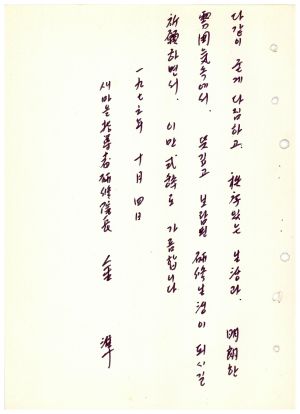 다같이 굳게 다짐하고 秩序있는 생활과 明朗한
雰囲気속에서. 뜻깊고 보람된 硏修生活이 되시길
祈願하면서. 이만 式辭로 가름합니다
一九七三年 十月 四日
새마을指導者硏修院長 金 準